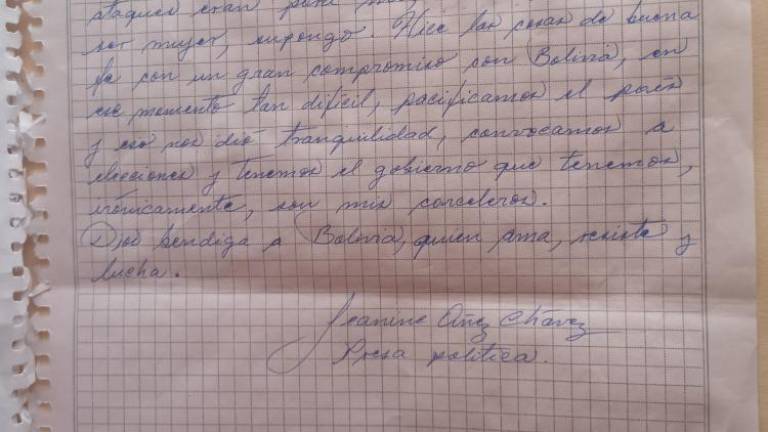 ataques eran para m
ser mujer, supongo. Hice las cosas de buena
fe con un gran compromiso con Bolivia, en
ese momento tan difícil, pacificamos el país
y eso nos dió tranquilidad, convocamos a
elecciones y tenemos el gobierno que tenemos,
irónicamente, son mis carceleros.
Dios bendiga a Bolivia, quien ama, resiste y
lucha.
Jeanine Añez Chávez
Presa política.